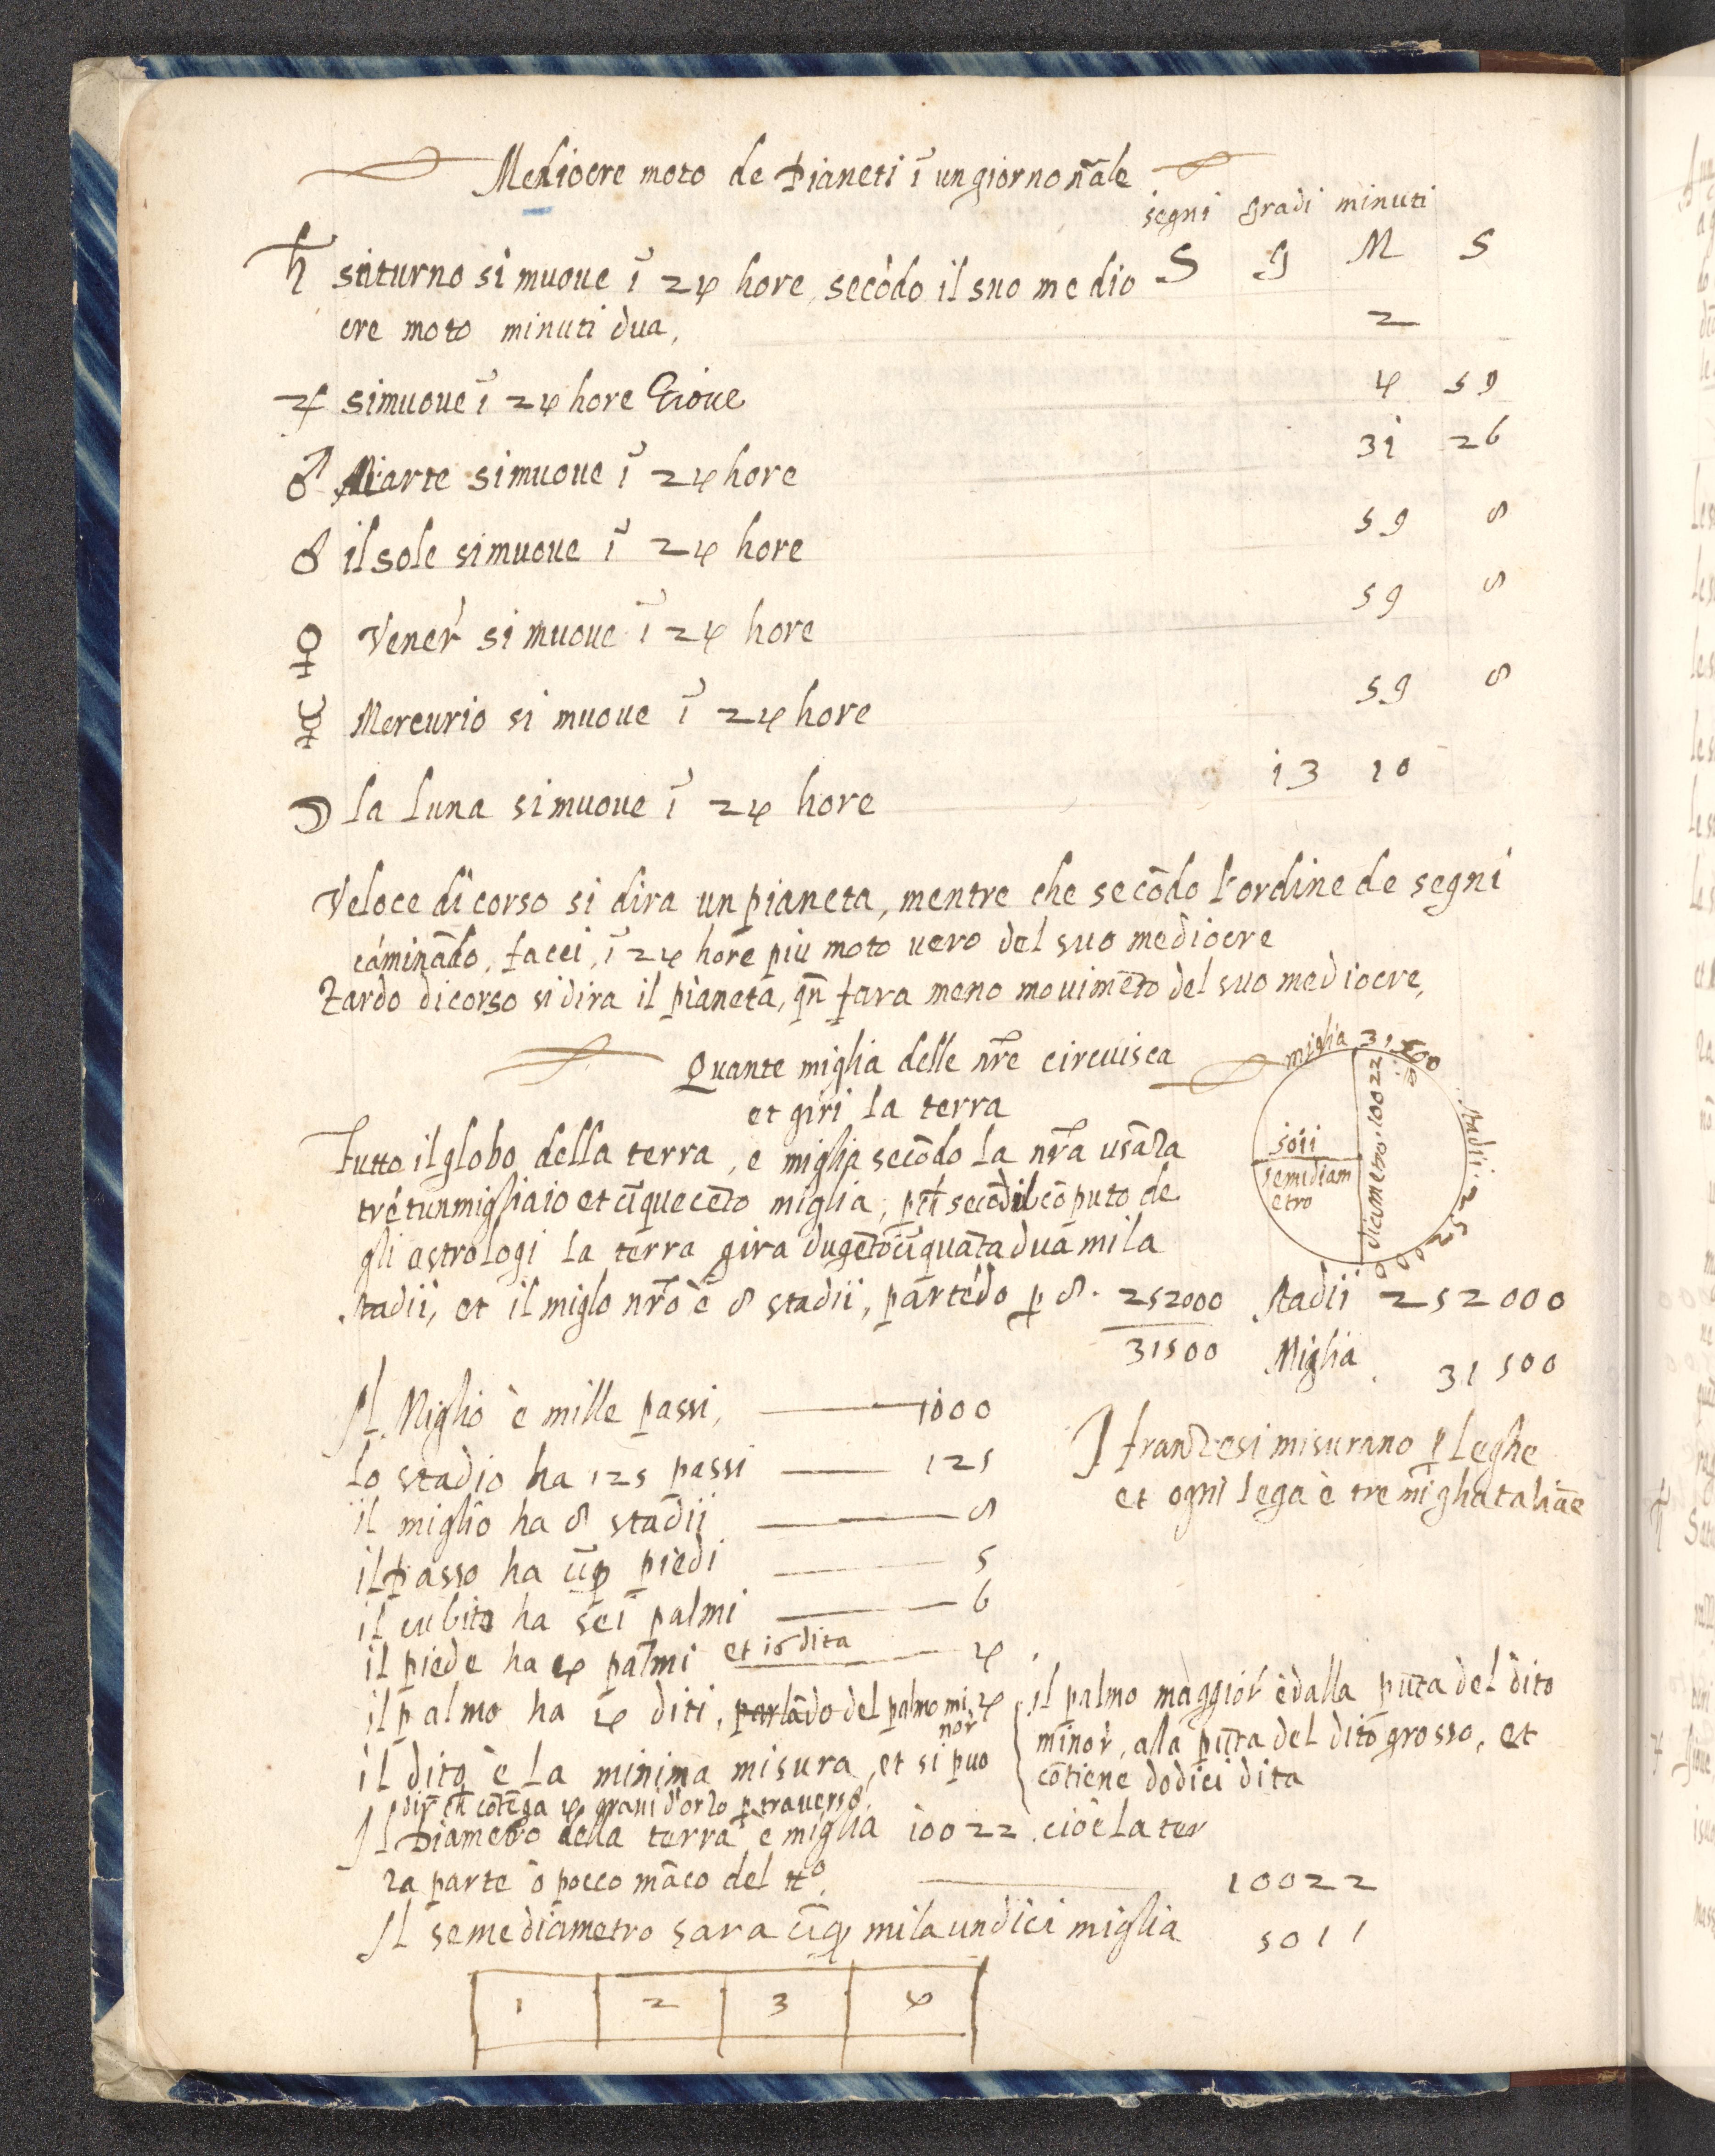 Mediocre moto de Pianeti ī un giorno nãle
segni gradi minuti
S g M S
♄ saturno si muoue ī 24 hore, secõdo il suo medio
cre moto minuti dua, 2
♃ simuoue ī 24 hore Gioue 4 59
♂ Marte simuoue ī 24 hore 31 26
♂ il sole simuoue ī 24 hore 59 8
♀ Vener si muoue ī 24 hore 59 8
☿ Mercurio si muoue ī 24 hore 59 8
☽ la Luna simuoue ī 24 hore 13 10
Veloce di corso si dira un pianeta, mentre che secõdo l'ordine de segni
caminãdo, facci, ī 24 hore piu moto uero del suo mediocre
Tardo di corso si dira il pianeta, qñ fara meno mouimẽto del suo mediocre,
Quante miglia delle nr̃e circuisca
et giri la terra
miglia 31500
stadii. 252000
diametro. 10022
5011
semidiam
etro
Tutto il globo della terra, e miglia secõdo la nr̃a usãza
trẽtun migliaio et cīquecẽto miglia, secõdil cõputo de
gli astrologi la terra gira dugẽtocīquãta dua mila
stadii, et il miglo nr̃o è 8 stadii, partẽdo p 8. 252000 stadii 252000
31500 Miglia 31500
Il Miglio è mille passi, 1000
Lo stadio ha 125 passi 125
il miglio ha 8 stadii 8
il Passo ha cīq piedi 5
il cubito ha sei palmi 6
il piede ha 4 palmi et 16 dita 4
il palmo ha 4 diti, parlãdo del palmo mi 4
nor
il dito è la minima misura, et si puo
dir ch cõtẽga 4 grani d'orzo p trauerso.
I franzesi misurano p Leghe
et ogni lega è tre miglia taliãe
il palmo maggior è dalla pũta del dito
minor, alla pũta del dito grosso, et
cõtiene dodici dita
Il Diametro della terra è miglia 10022 cioè la ter
za parte ò pocco mãco del tt°. 10022
Il semediametro sara cīq mila undici miglia 5011
1 2 3 4